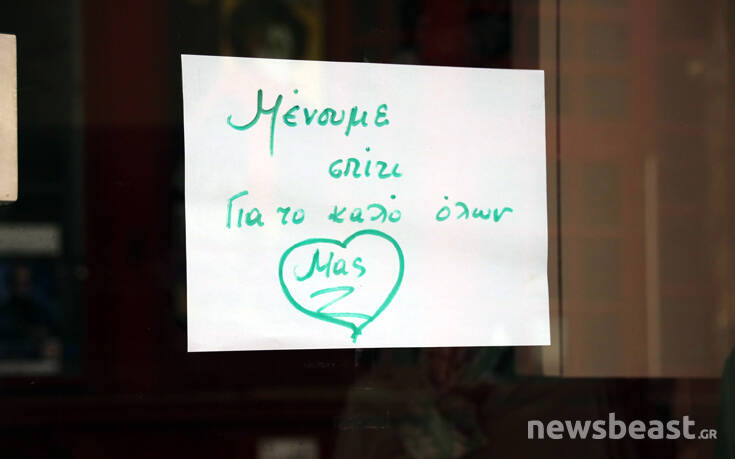 Μένουμε
σπίτι
Για το καλό όλων
Μας
newsbeast.GR